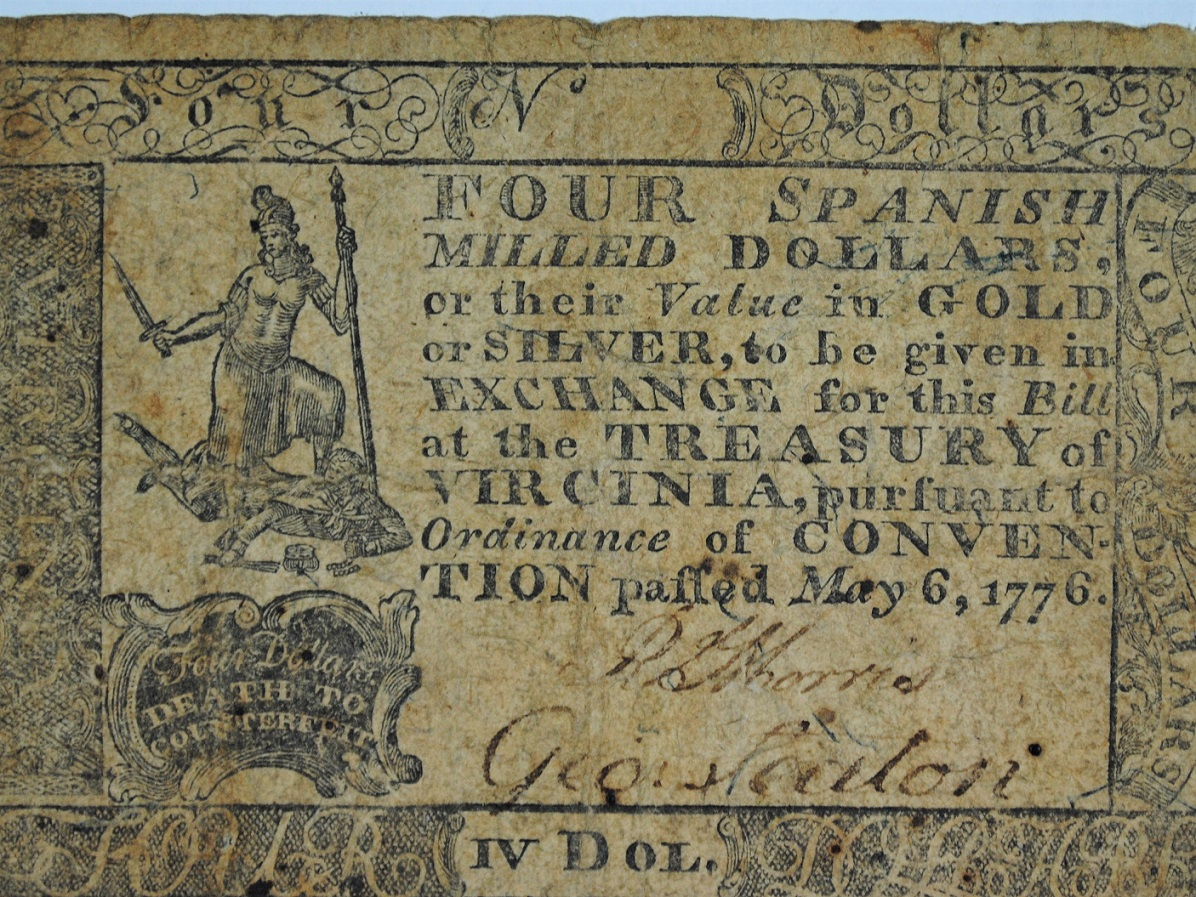 Four N° Dollars
FOUR SPANISH
MILLED DOLLARS,
or their Value in GOLD
or SILVER, to be given in
EXCHANGE for this Bill
at the TREASURY of
VIRGINIA, purſuant to
Ordinance of CONVEN-
TION paſſed May 6, 1776.
Four Dollars
DEATH TO
COUNTERFEIT
Geo:
IV DOL.
FOUR DOLLARS
FOUR